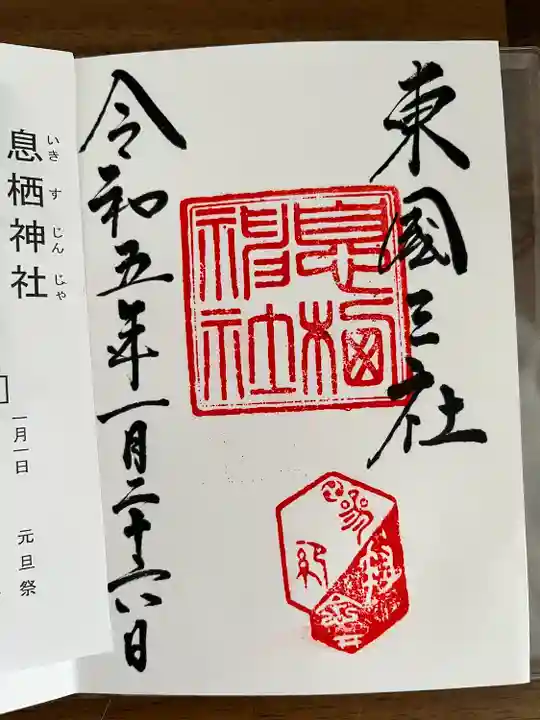 東國三社
息栖神社
令和五年一月二十六日
息栖神社
いきすじんじゃ
一月一日 元旦祭